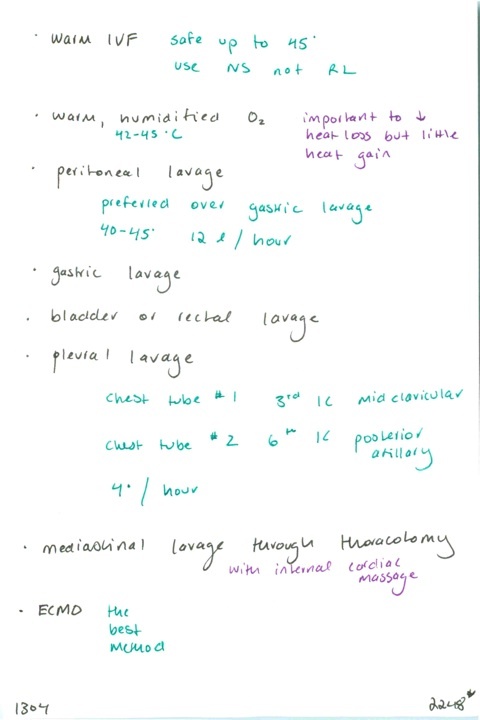 · warm IVF safe up to 45°
use NS not RL
· warm, humidified O₂ important to ↓
42-45°C heat loss but little
heat gain
· peritoneal lavage
preferred over gastric lavage
40-45° 12 l / hour
· gastric lavage
· bladder or rectal lavage
· pleural lavage
chest tube #1 3rd IC midclavicular
chest tube #2 6th IC posterior
axillary
4° / hour
· mediastinal lavage through thoracotomy
with internal cardiac
massage
· ECMO the
best
method
1304 2248